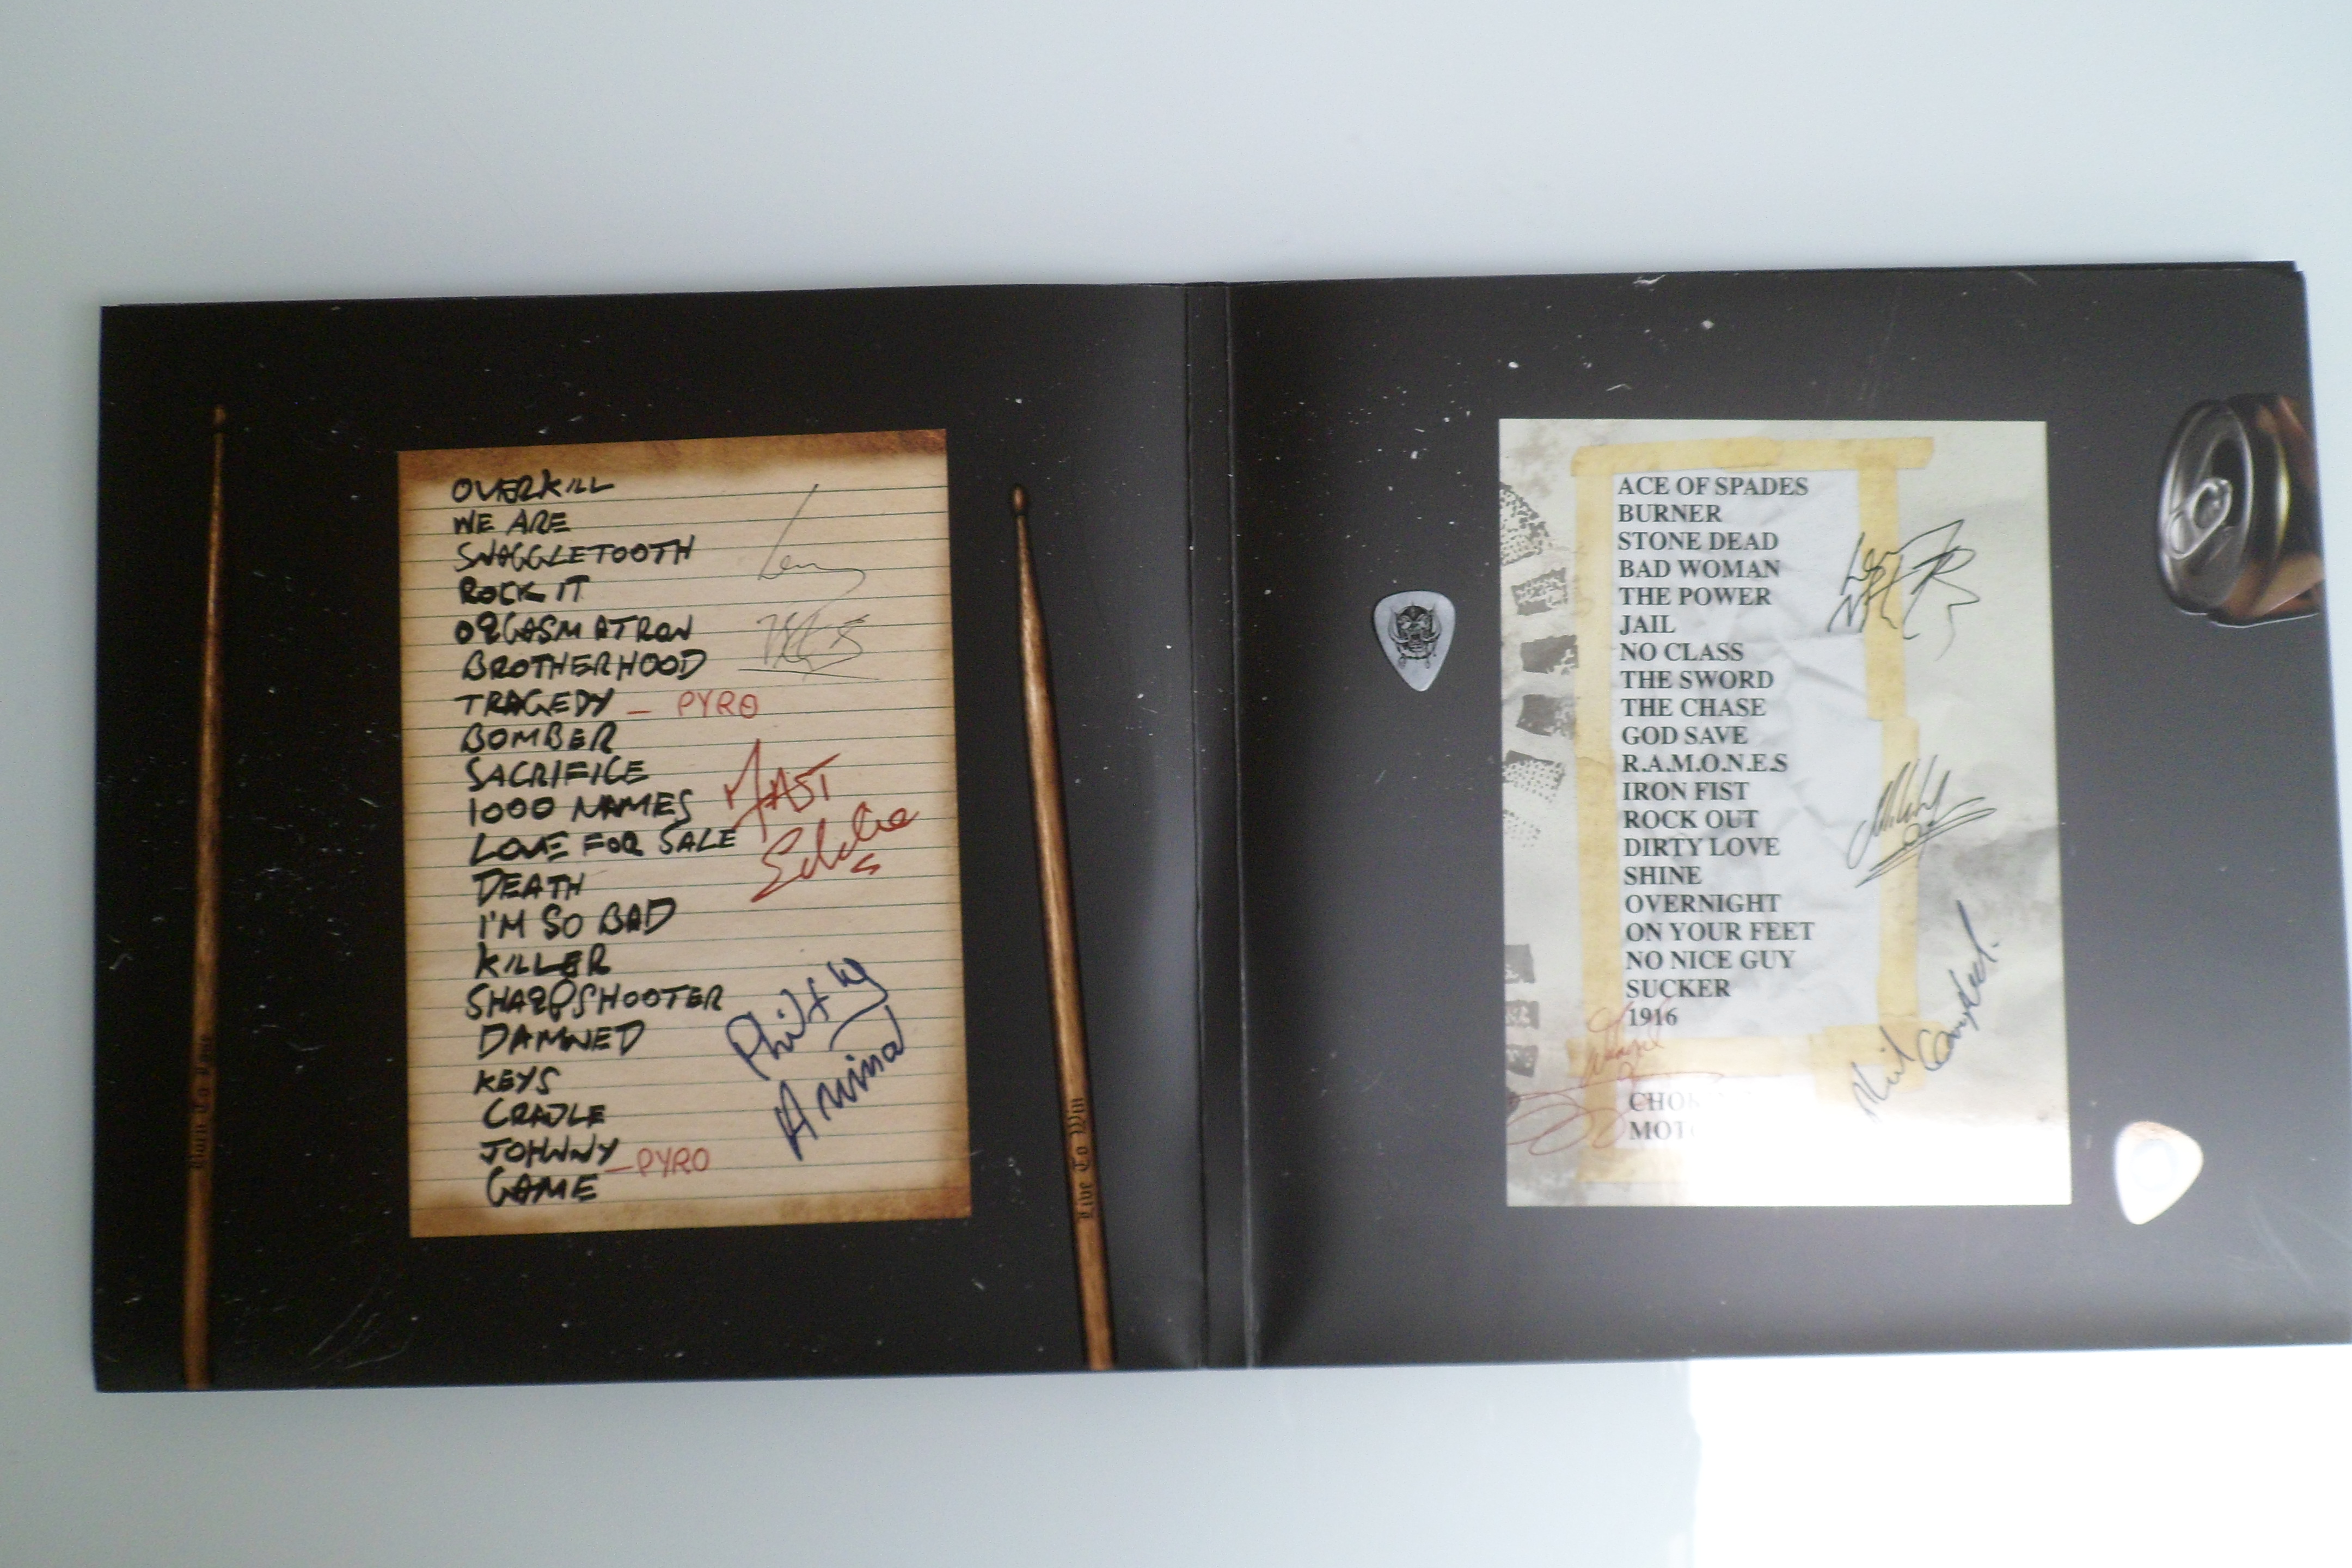 OVERKILL
WE ARE
SNAGGLETOOTH
ROCK IT
ORGASMATRON
BROTHERHOOD
TRAGEDY - PYRO
BOMBER
SACRIFICE
1000 NAMES
LOVE FOR SALE
DEATH
I'M SO BAD
KILLER
SHARPSHOOTER
DAMNED
KEYS
CRADLE
JOHNNY - PYRO
GAME
Lemmy
FAST
Eddie
Philthy
Animal
Live To Win
ACE OF SPADES
BURNER
STONE DEAD
BAD WOMAN
THE POWER
JAIL
NO CLASS
THE SWORD
THE CHASE
GOD SAVE
R.A.M.O.N.E.S
IRON FIST
ROCK OUT
DIRTY LOVE
SHINE
OVERNIGHT
ON YOUR FEET
NO NICE GUY
SUCKER
1916
CHOK
MOT
Phil Campbell.